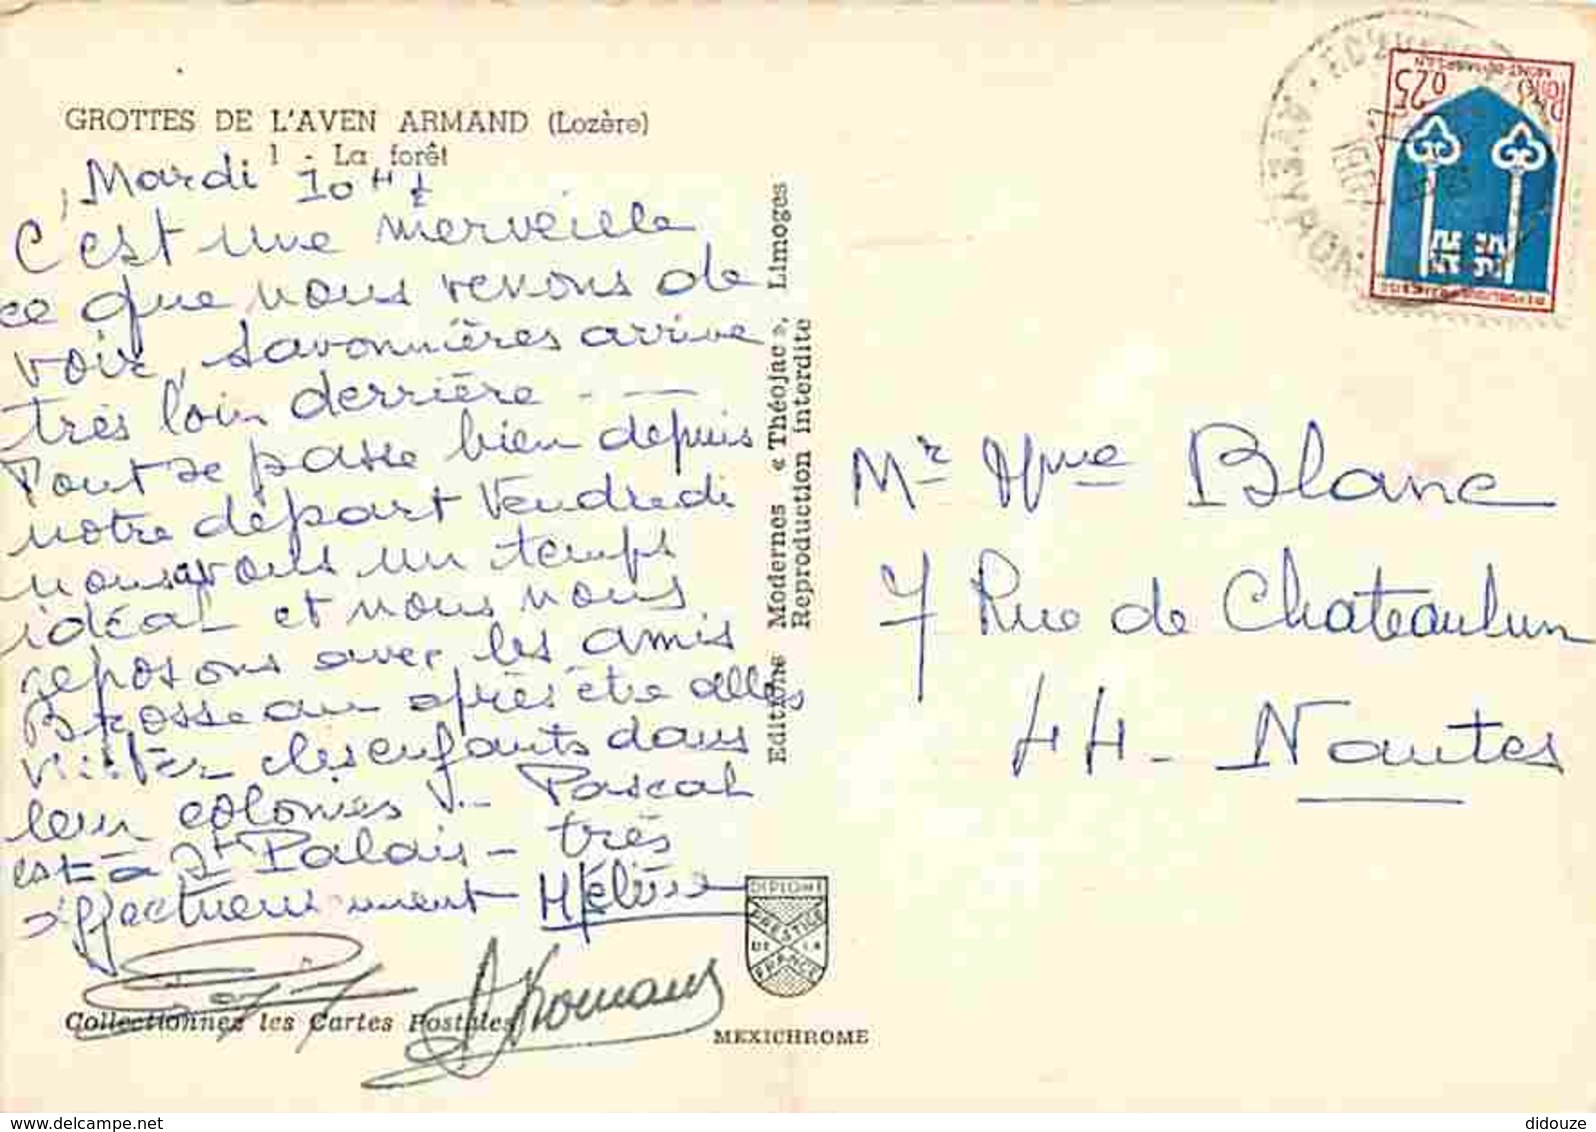 GROTTES DE L'AVEN ARMAND (Lozère)
1 - La forêt
Mardi 10 H ½
C'est une merveille
ce que nous venons de
voir, Savonnières arrive
très loin derrière - —
Tout se passe bien depuis
notre départ Vendredi
nous avons un temps
idéal et nous nous
reposons avec les amis
Brosseau après être allés
visiter les enfants dans
leur colonies
Pascal
est à St Palais - très
affectueusement Hélène
Romans
Collectionnez les Cartes Postales
Editions Modernes « Théojac », Limoges
Reproduction interdite
DIPLOME
PRESTIGE
DE LA
FRANCE
MEXICHROME
0,25
MONT-DE-MARSAN
Mr Mme Blanc
7 Rue de Chateaulun
44 - Nantes
delcampe.net
didouze